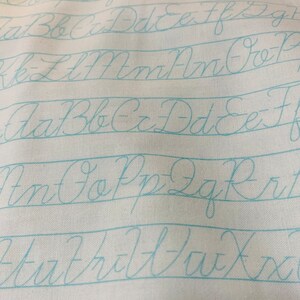 Bb Cc Dd Ee Ff Gg
Kk Ll Mm Nn Oo P
Aa Bb Cc Dd Ee Ff
Nn Oo Pp Qq Rr
Uu Vv Ww Xx